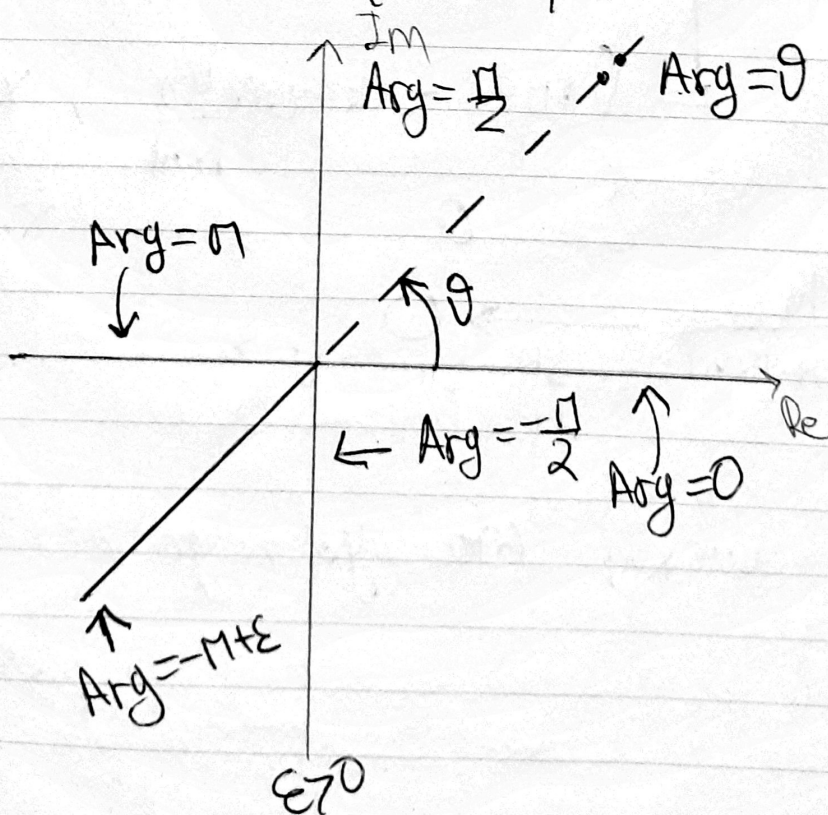 Im
Arg = π/2
Arg = θ
Arg = π
θ
Re
Arg = -π/2
Arg = 0
Arg = -π+ε
ε>0